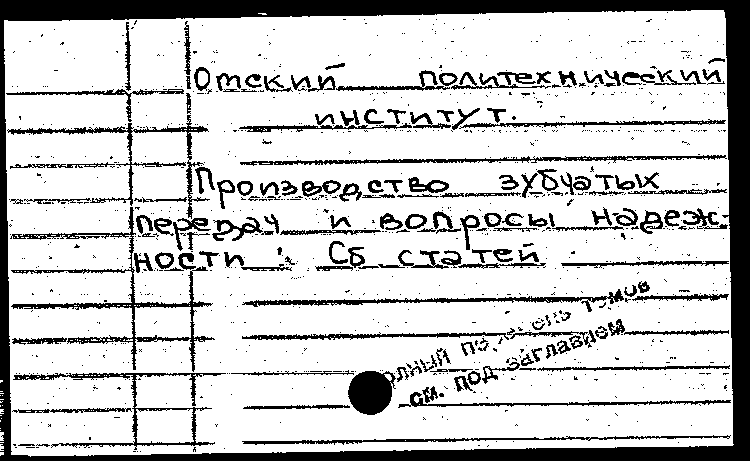 Омский политехнический
институт.
Производство зубчатых
передач и вопросы надеж-
ности : Сб статей
полный перечень томов
см. под заглавием